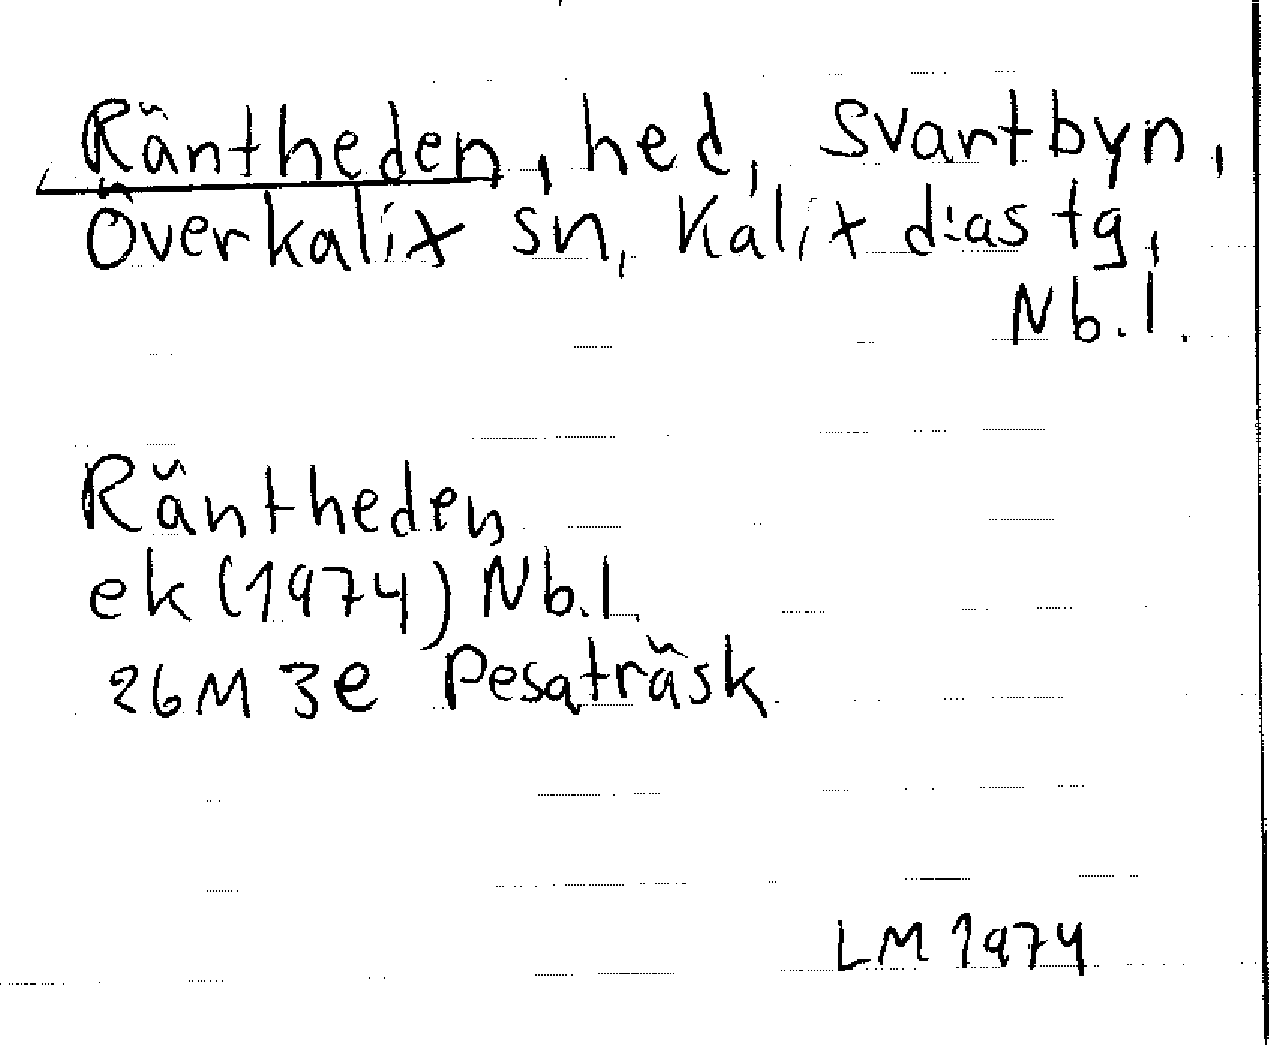 Räntheden, hed, Svartbyn,
Överkalix sn, Kalix d:as tg,
Nb.l.
Räntheden
ek (1974) Nb.L
26M 3e Pesaträsk
LM 1974